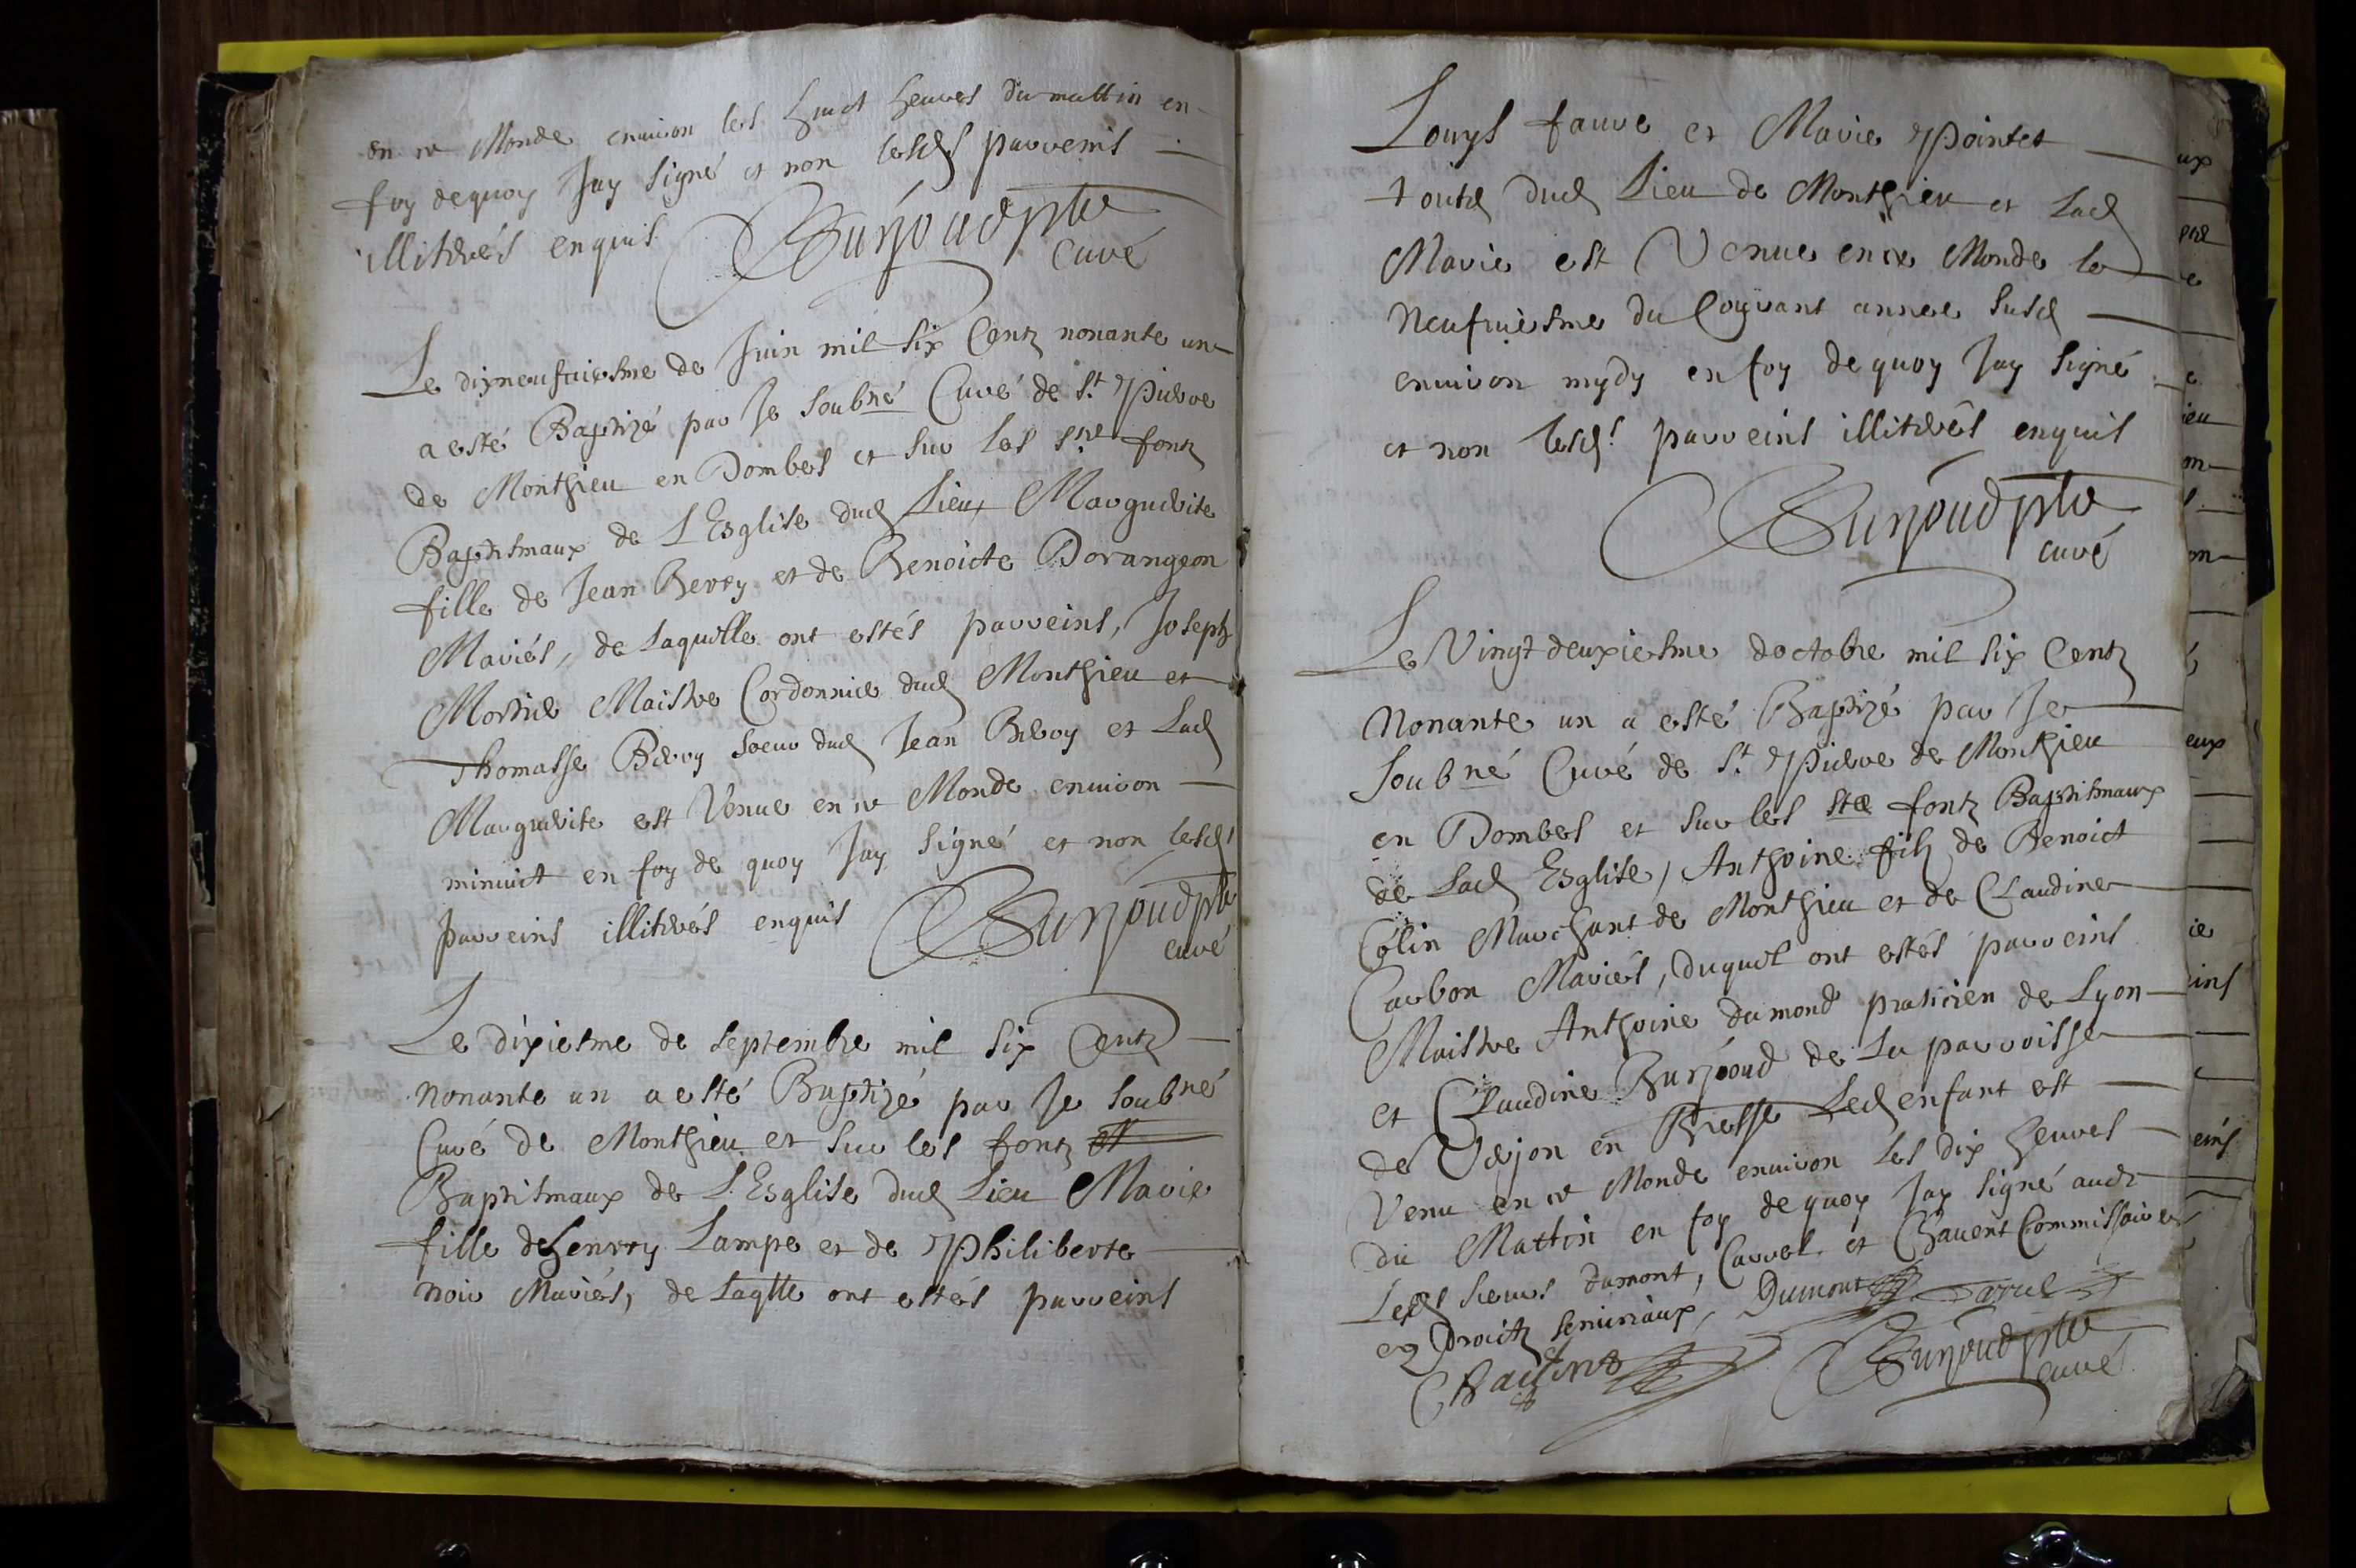 en ce Monde environ les huict heures du mattin en
foy de quoy Jay signé et non lesds parreins
illiterés enquis Burjoud ptre
curé
Le dixneufuiesme de Juin mil six Centz nonante un
a esté Baptizé par Je soubné Curé de St. Pierre
de Monthieu en Dombes et sur les stes fontz
Baptismaux de L'Esglise dud Lieu Marguerite
fille de Jean Berry et de Benoicte Dorangeon
Mariés, de Laquelle ont estés parreins, Joseph
Mortier Maistre Cordonnier dud Monthieu et
Thomasse Berry soeur dud Jean Berry et Lad
Marguerite est Venue en ce Monde environ
minuict en foy de quoy Jay signé et non lesds
parreins illiterés enquis Burjoud ptre
curé
Le dixiesme de septembre mil six Centz
nonante un a esté Baptizé par Je soubné
Curé de Monthieu et sur les fontz
Baptismaux de L'Esglise dud Lieu Marie
fille de henrry Lampe et de Philiberte
noir Mariés, de Laqlle ont estés parreins
Louys faure et Marie Pointet
touts dud Lieu de Monthieu et Lad
Marie est Venue en ce Monde le
Neufuiesme du Courant annee susd
environ mydy en foy de quoy Jay signé
et non lesds parreins illiterés enquis
Burjoud ptre
curé
Le Vingt deuxiesme doctobre mil six Centz
Nonante un a esté Baptizé par Je
soubné Curé de St. Pierre de Monthieu
en Dombes et sur les stes fontz Baptismaux
de Lad Esglise, Anthoine filz de Benoict
Colin Marchant de Monthieu et de Claudine
Carbon Mariés, duquel ont estés parreins
Maistre Anthoine dumond praticien de Lyon
et Claudine Burjoud de La parroisse
de Verjon en Bresse Led enfant est
Venu en ce Monde environ les dix heures
du Mattin en foy de quoy Jay signé avec
Lesds sieurs dumont, Carrel et Chavent Commissaires
ez Droictz seneuriaux, Dumont Carrel
Burjoud ptre
curé